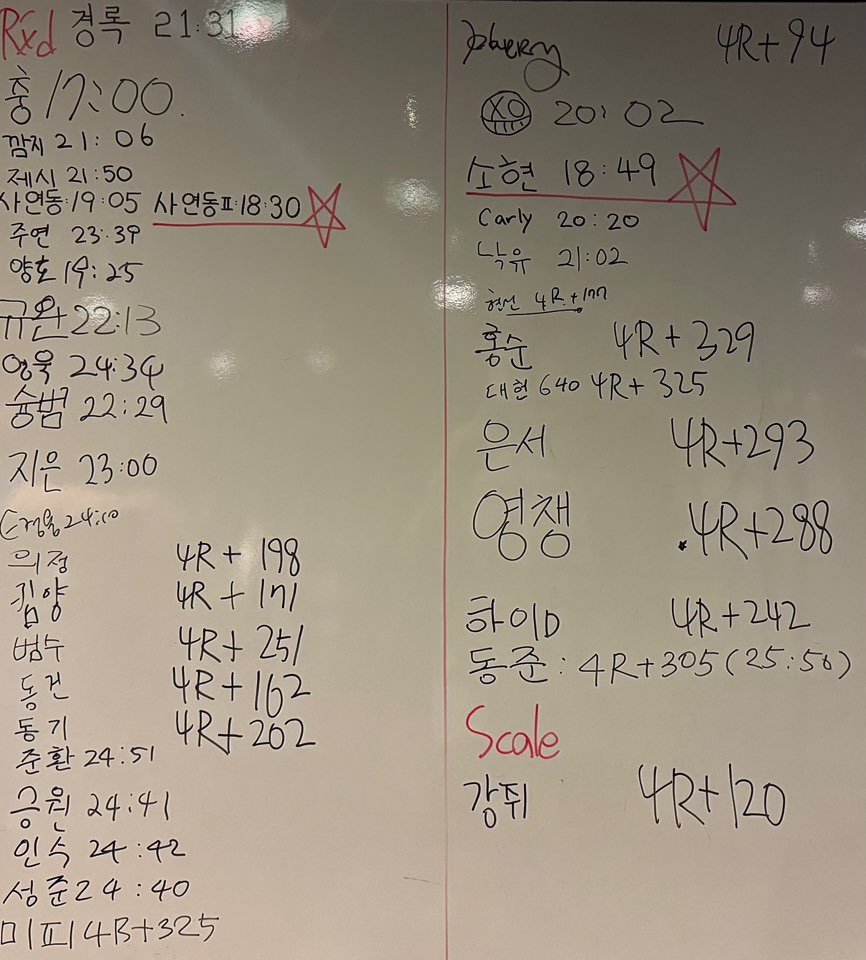 Rxd 경록 21:31
충 17:00.
깜지 21:06
제시 21:50
사연동:19:05 사연동Ⅱ:18:30
주연 23:39
양호 19:25
규완 22:13
영욱 24:34
승범 22:29
지은 23:00
24:10
의정 4R+ 198
킴양 4R+171
범수 4R+251
동건 4R+162
동기 4R+202
준환 24:51
승원 24:41
인숙 24:42
성준 24:40
미피 4R+325
4R+94
XO 20:02
소현 18:49
Carly 20:20
낙유 21:02
현선 4R+177
홍순 4R+329
대현 640 4R+325
은서 4R+293
영쟁 4R+288
하이D 4R+242
동준: 4R+305(25:56)
Scale
강쥐 4R+120